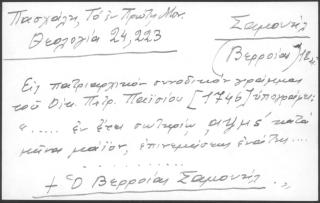 Πασχάλη, Τὸ ἐν Πρώτῃ Μον.
Θεολογία 24,223
Σαμουήλ
(Βερροίας)
Εἰς πατριαρχικὸν συνοδικὸν γράμμα
τοῦ Οἰκ. Πατρ. Παϊσίου [1746] ὑπογράφει:
"..... ἐν ἔτει σωτηρίῳ ͵αψμς΄ κατὰ
μῆνα μαϊον, ἐπινεμήσεως ἐνάτης...
. . . . . . . . .
+ Ὁ Βερροίας Σαμουήλ ..,